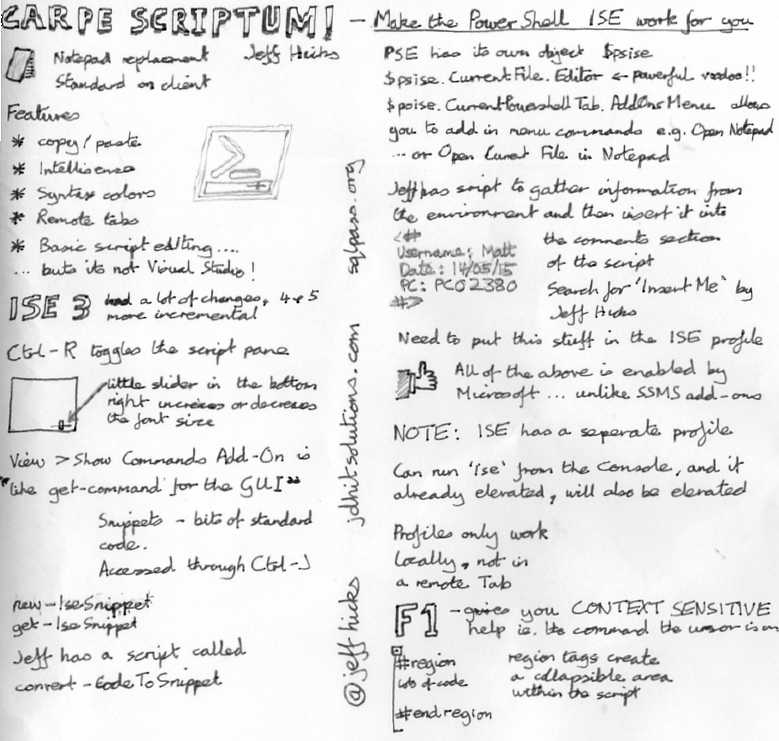 CARPE SCRIPTUM! - Make the PowerShell ISE work for you
Notepad replacement Jeff Hicks
Standard on client
Features
* copy/paste
* Intellisense
* Syntax colors
* Remote tabs
* Basic script editing....
... but its not Visual Studio!
ISE 3 had a lot of changes, 4 & 5
more incremental
Ctrl-R toggles the script pane
little slider in the bottom
right increases or decreases
the font size
View > Show Commands Add-On is
"like get-command for the GUI"
Snippets - bits of standard
code.
Accessed through Ctrl-J
new-IseSnippet
get-IseSnippet
Jeff has a script called
convert-CodeToSnippet
@jeffhicks jdhitsolutions.com sqlpass.org
PSE has its own object $psise
$psise.CurrentFile.Editor ← powerful voodoo!!
$psise.CurrentPowershellTab.AddOnsMenu allows
you to add in menu commands e.g. Open Notepad
... or Open Current File in Notepad
Jeff has script to gather information from
the environment and then insert it into
<# the comments section
Username: Matt of the script
Date: 14/05/15
PC: PC02380 Search for 'Insert Me' by
#> Jeff Hicks
Need to put this stuff in the ISE profile
All of the above is enabled by
Microsoft ... unlike SSMS add-ons
NOTE: ISE has a seperate profile
Can run 'ise' from the console, and if
already elevated, will also be elevated
Profiles only work
locally, not in
a remote Tab
F1 - gives you CONTEXT SENSITIVE
help ie. the command the cursor is on
#region region tags create
lots of code a collapsible area
within the script
#endregion